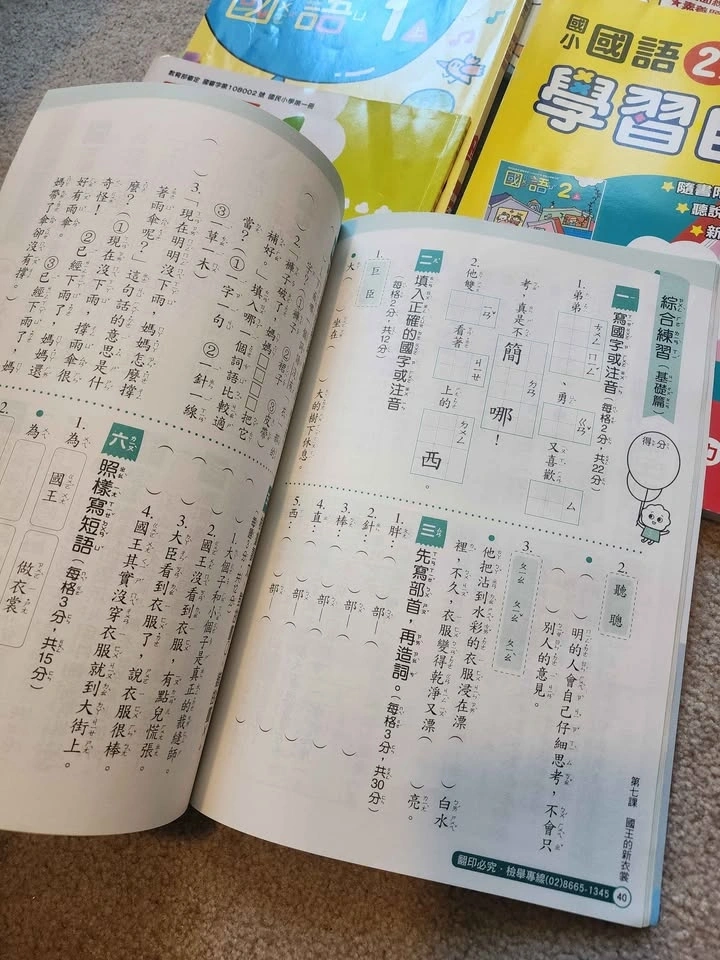 國語1上
教育部審定 國審字第108002號 國民小學第一冊
國小國語2
學習
隨書附
聽說
新
國語2上
綜合練習(基礎篇)
得分
一 寫國字或注音(每格2分,共22分)
1.弟弟ㄘㄨㄥ ㄇㄧㄥˊ、勇ㄍㄢˇ,又喜歡ㄙ
考,真是不簡ㄉㄢ哪!
2.他雙ㄧㄢˇ看著ㄕㄣ上的ㄉㄨㄥ西。
二 填入正確的國字或注音
(每格2分,共12分)
1.巨 臣
大( )坐在( )大的樹下休息。
2.聽 聰
( )明的人會自己仔細思考,不會只
( )別人的意見。
3.ㄆㄧㄠ ㄆㄧㄠˇ ㄆㄧㄠˋ
他把沾到水彩的衣服浸在漂( )白水
裡,不久,衣服變得乾淨又漂( )亮。
三 先寫部首,再造詞。(每格3分,共30分)
1.胖:( )部—( )
2.針:( )部—( )
3.棒:( )部—( )
4.直:( )部—( )
5.西:( )部—( )
第七課 國王的新衣裳
翻印必究・檢舉專線(02)8665-1345
40
( )2.「褲子破了,媽媽□□□□把它
補好。」填入哪一個詞語比較適
當?①一字一句 ②一針一線
③一草一木
( )3.「現在明明沒下雨,媽媽怎麼撐
著雨傘呢?」這句話的意思是什
麼?①現在沒下雨,撐雨傘很
奇怪!②已經下雨了,媽媽還
好有雨傘。③已經下雨了,媽
媽帶了傘卻沒有撐。
1.大個子和小個子是真正的裁縫師。
2.國王沒看到衣服,有點兒慌張。
3.大臣看到衣服了,說衣服很棒。
4.國王其實沒穿衣服就到大街上。
六 照樣寫短語(每格3分,共15分)
1.為 國王 做衣裳
2.為